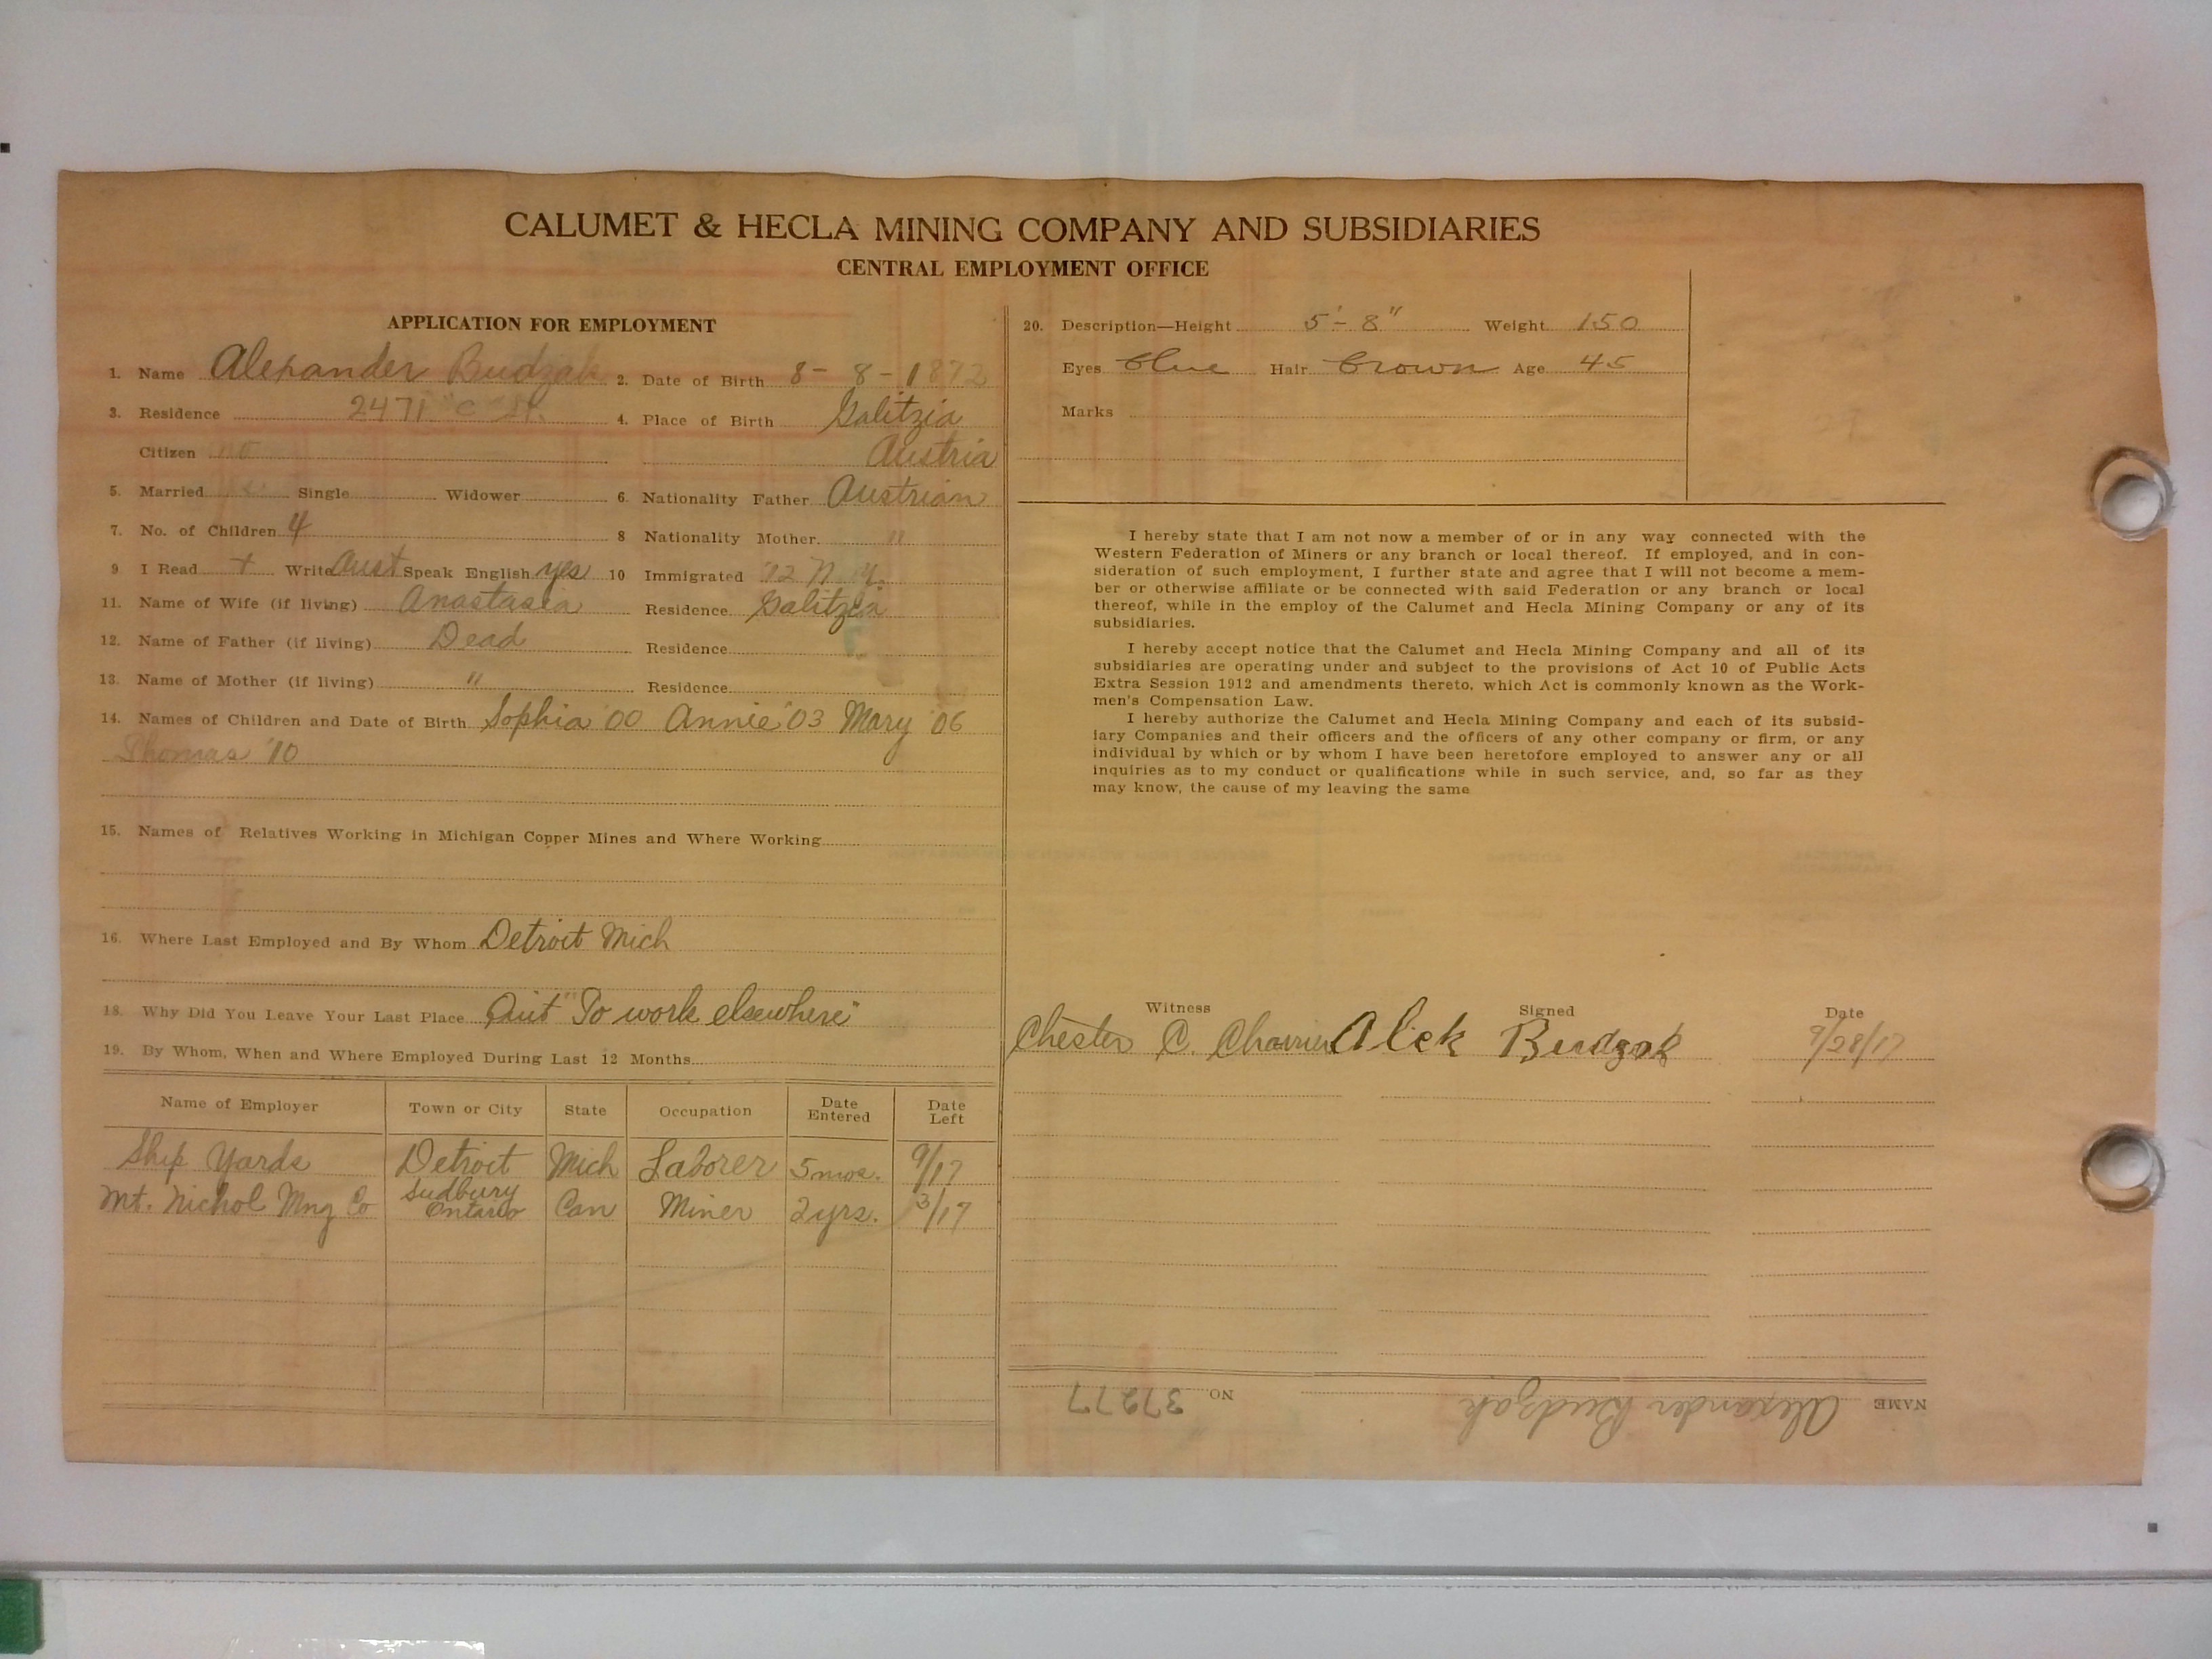 CALUMET & HECLA MINING COMPANY AND SUBSIDIARIES
CENTRAL EMPLOYMENT OFFICE
APPLICATION FOR EMPLOYMENT
1. Name Alexander Budzak 2. Date of Birth 8-8-1872
3. Residence 2471 "C" St. 4. Place of Birth Galitzia
Citizen no Austria
5. Married Single Widower 6. Nationality Father Austrian
7. No. of Children 4 8 Nationality Mother "
9 I Read + Write Aust Speak English yes 10 Immigrated '12 N.Y.
11. Name of Wife (if living) Anastasia Residence Galitzia
12. Name of Father (if living) Dead Residence
13. Name of Mother (if living) " Residence
14. Names of Children and Date of Birth Sophia '00 Annie '03 Mary '06
Thomas '10
15. Names of Relatives Working in Michigan Copper Mines and Where Working
16. Where Last Employed and By Whom Detroit Mich
18. Why Did You Leave Your Last Place Quit "To work elsewhere"
19. By Whom, When and Where Employed During Last 12 Months
Name of Employer Town or City State Occupation Date Entered Date Left
Ship Yards Detroit Mich Laborer 5 mos. 9/17
Mt. Nichol Mng Co Sudbury Ontario Can Miner 2 yrs. 3/17
20. Description—Height 5'-8" Weight 150
Eyes blue Hair brown Age 45
Marks
I hereby state that I am not now a member of or in any way connected with the
Western Federation of Miners or any branch or local thereof. If employed, and in con-
sideration of such employment, I further state and agree that I will not become a mem-
ber or otherwise affiliate or be connected with said Federation or any branch or local
thereof, while in the employ of the Calumet and Hecla Mining Company or any of its
subsidiaries.
I hereby accept notice that the Calumet and Hecla Mining Company and all of its
subsidiaries are operating under and subject to the provisions of Act 10 of Public Acts
Extra Session 1912 and amendments thereto, which Act is commonly known as the Work-
men's Compensation Law.
I hereby authorize the Calumet and Hecla Mining Company and each of its subsid-
iary Companies and their officers and the officers of any other company or firm, or any
individual by which or by whom I have been heretofore employed to answer any or all
inquiries as to my conduct or qualifications while in such service, and, so far as they
may know, the cause of my leaving the same
Witness Signed Date
Chester C. Alek Budzak 9/28/17
NAME Alexander Budzak NO. 37277